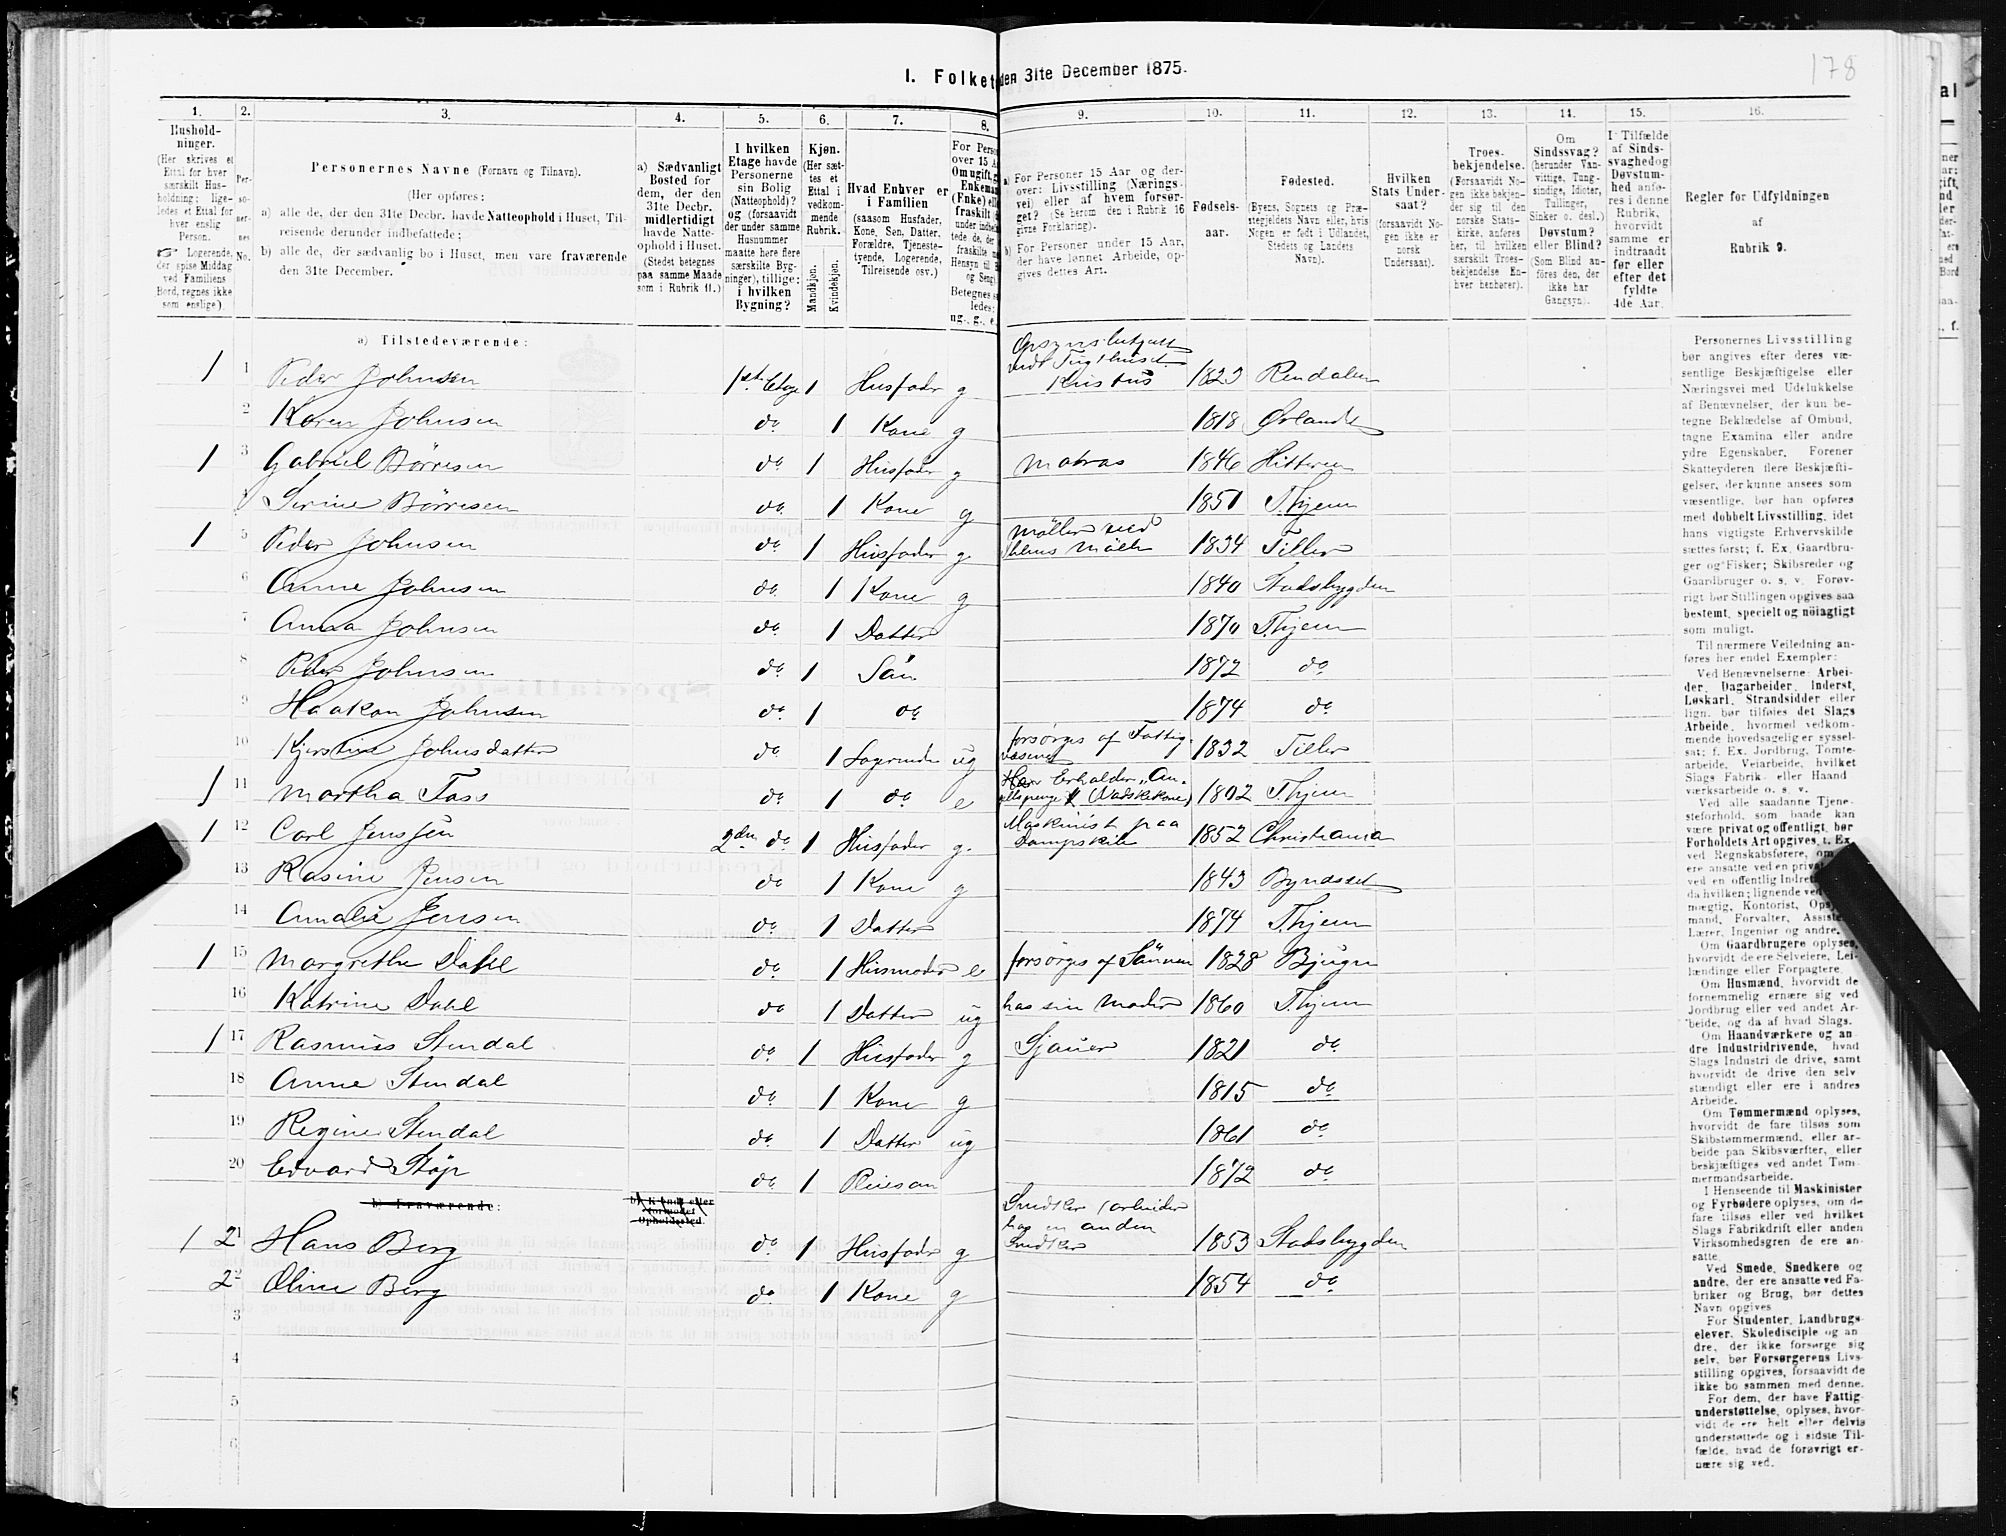 178
I. Folket
den 31te December 1875.
1. 2. 3. 4. 5. 6. 7. 8. 9. 10. 11. 12. 13. 14. 15. 16.
Hushold-
ninger.
(Her skrives et
Ettal for hver
særskilt Hus-
holdning; lige-
ledes et Ettal for
hver enslig
Person.
Logerende,
der spise Middag
ved Familiens
Bord, regnes ikke
som enslige).
Per-
so-
ner-
nes
No.
Personernes Navne (Fornavn og Tilnavn).
(Her opføres:
a) alle de, der den 31te Decbr. havde Natteophold i Huset, Til-
reisende derunder indbefattede;
b) alle de, der sædvanlig bo i Huset, men vare fraværende
den 31te December.
a) Sædvanligt
Bosted for
dem, der den
31te Decbr.
midlertidigt
havde Natte-
ophold i Huset.
(Stedet betegnes
paa samme Maade
som i Rubrik 11.)
I hvilken
Etage havde
Personerne
sin Bolig
(Natteophold)?
og (forsaavidt
der under samme
Husnummer
maatte høre flere
særskilte Byg-
ninger), tillige:
i hvilken
Bygning?
Kjøn.
(Her sæt-
tes et
Ettal i
vedkom-
mende
Rubrik.
Mandkjøn.
Kvindekjøn.
Hvad Enhver er
i Familien
(saasom Husfader,
Kone, Søn, Datter,
Forældre, Tjeneste-
tyende, Logerende,
Tilreisende osv.)
For Perso
over 15 A
Om ugift, g
Enkema
(Enke) ell
fraskilt
under indbe
tede de, der
fraskilte
Hensyn til B
og Seng)
Betegnes s
ledes:
ug., g., e.
a) For Personer 15 Aar og der-
over: Livsstilling (Nærings-
vei) eller af hvem forsør-
get? (Se herom den i Rubrik 16
givne Forklaring).
b) For Personer under 15 Aar,
der have lønnet Arbeide, op-
gives dettes Art.
Fødsels-
aar.
Fødested.
(Byens, Sognets og Præ-
stegjeldets Navn eller, hvis
Nogen er født i Udlandet,
Stedets og Landets
Navn).
Hvilken
Stats Under-
saat?
(forsaavidt No-
gen ikke er
norsk
Undersaat).
Troes-
bekjendelse.
(Forsaavidt No-
gen ikke bekjen-
der sig til den
norske Stats-
kirke, anføres
her, til hvilken
særskilt Troes-
bekjendelse En-
hver henhører).
Om
Sindssvag?
(herunder Van-
vittige, Tung-
sindige, Idioter,
Tullinger,
Sinker o. desl.)
Døvstum?
eller Blind?
(Som Blind an-
føres den, der
ikke har
Gangsyn).
I Tilfælde
af Sinds-
svaghed og
Døvstum-
hed anfø-
res i denne
Rubrik,
hvorvidt
samme er
indtraadt
før eller
efter det
fyldte
4de Aar.
Regler for Udfyldningen
af
Rubrik 9.
a) Tilstedeværende:
1 1 Peder Johnsen 1ste Etage 1 Husfader g Opsynsbetjent ved Tugthuset 1823 Rendalen
2 Karen Johnsen do 1 Kone g 1818 Ørlandet
1 3 Gabriel Börresen do 1 Husfader g Matros 1846 Hitteren
4 Serine Börresen do 1 Kone g 1851 Thjem
1 5 Peder Johnsen do 1 Husfader g Møller ved Mølle 1834 Tiller
6 Anne Johnsen do 1 Kone g 1840 Stadsbygden
7 Anna Johnsen do 1 Datter 1870 Thjem
8 Peder Johnsen do 1 Sön 1872 do
9 Haakon Johnsen do 1 do 1874 do
10 Kjerstine Johnsdatter do 1 Logerende ug forsørges af Fattigvæsenet 1832 Tiller
1 11 Martha Fass do 1 do e Erholder (Vadskekone) 1802 Thjem
1 12 Carl Jenssen 2den do 1 Husfader g. Maskinist paa Dampskib 1852 Christiania
13 Rasine Jensen do 1 Kone g 1843 Byndset
14 Amalie Jensen do 1 Datter 1874 Thjem
1 15 Margrethe Dahl do 1 Husmoder e forsørges af Sønnen 1828 Bjugn
16 Katrine Dahl do 1 Datter ug hos sin Moder 1860 Thjem
1 17 Rasmus Stendal do 1 Husfader g Sjauer 1821 do
18 Anne Stendal do 1 Kone g 1815 do
19 Regine Stendal do 1 Datter ug 1861 do
20 Edvard Støp do 1 Pleiesøn 1872 do
b) Fraværende:
b) Kjendt eller
formodet
Opholdssted.
1 21 Hans Berg do 1 Husfader g Snedker (arbeider hos en anden Snedker 1853 Stadsbygden
22 Oline Berg do 1 Kone g 1854 do
3
4
5
6
Personernes Livsstilling
bør angives efter deres væ-
sentlige Beskjæftigelse eller
Næringsvei med Udelukkelse
af Benævnelser, der kun be-
tegne Beklædelse af Ombud,
tagne Examina eller andre
ydre Egenskaber. Forener
Skatteyderen flere Beskjæfti-
gelser, der kunne ansees som
væsentlige, bør han opføres
med dobbelt Livsstilling, idet
hans vigtigste Erhvervskilde
sættes først; f. Ex. Gaardbru-
ger og Fisker; Skibsreder og
Gaardbruger o. s. v. Forøv-
rigt bør Stillingen opgives saa
bestemt, specielt og nöiagtigt
som muligt.
Til nærmere Veiledning an-
føres her endel Exempler:
Ved Benævnelserne: Arbei-
der, Dagarbeider, Inderst,
Løskarl, Strandsidder eller
lign. bør tilføies det Slags
Arbeide, hvormed vedkom-
mende hovedsagelig er syssel-
sat; f. Ex. Jordbrug, Tomte-
arbeide, Veiarbeide, hvilket
Slags Fabrik- eller Haand-
værksarbeide o. s. v.
Ved alle saadanne Tjene-
steforhold, som baade kan
være privat og offentligt, bør
Forholdets Art opgives, t. Ex.
ved Regnskabsførere, om
ere ansatte ved en privat
ved en offentlig Indret
da hvilken; lignende ved
mægtig, Kontorist, Ops
mand, Forvalter, Assist
Lærer, Ingeniør og andre.
Om Gaardbrugere oplyses,
hvorvidt de ere Selveiere, Lei-
lændinge eller Forpagtere.
Om Husmænd, hvorvidt de
fornemmelig ernære sig ved
Jordbrug eller ved andet Ar-
beide, og da af hvad Slags.
Om Haandværkere og an-
dre Industridrivende, hvad
Slags Industri de drive, samt
hvorvidt de drive den selv-
stændigt eller ere i andres
Arbeide.
Om Tømmermænd oplyses,
hvorvidt de fare tilsøs som
Skibstømmermænd, eller ar-
beide paa Skibsværfter, eller
beskjæftiges ved andet Tøm-
mermandsarbeide.
I Henseende til Maskinister
og Fyrbødere oplyses, om de
fare tilsøs eller ved hvilket
Slags Fabrikdrift eller anden
Virksomhedsgren de ere an-
satte.
Ved Smede, Snedkere og
andre, der ere ansatte ved Fa-
briker og Brug, bør dettes
Navn opgives
For Studenter, Landbrugs-
elever, Skoledisciple og an-
dre, der ikke forsørge sig
selv, bør Forsørgerens Livs-
stilling opgives, forsaavidt de
ikke bo sammen med denne.
For dem, der have Fattig-
understøttelse, oplyses, hvor-
vidt de ere helt eller delvis
understøttede og i sidste Til-
fælde, hvad de forøvrigt er-
nære sig ved.